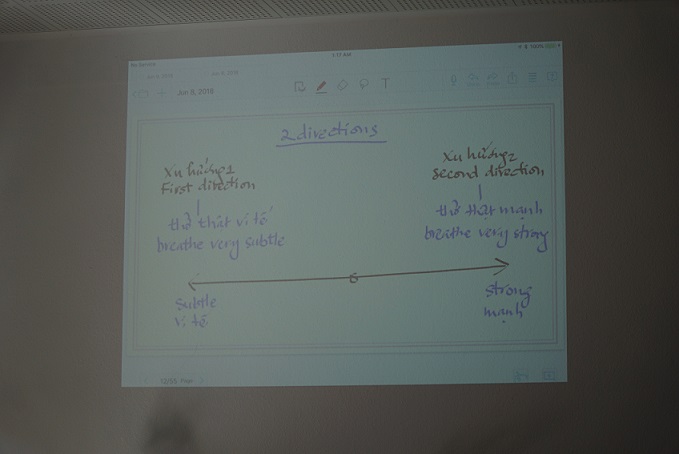 No Service
1:17 AM
100%
Jun 8, 2018
T
2 directions
Xu hướng 1
First direction
thở thật vi tế
breathe very subtle
Xu hướng 2
second direction
thở thật mạnh
breathe very strong
subtle
vi tế
strong
mạnh